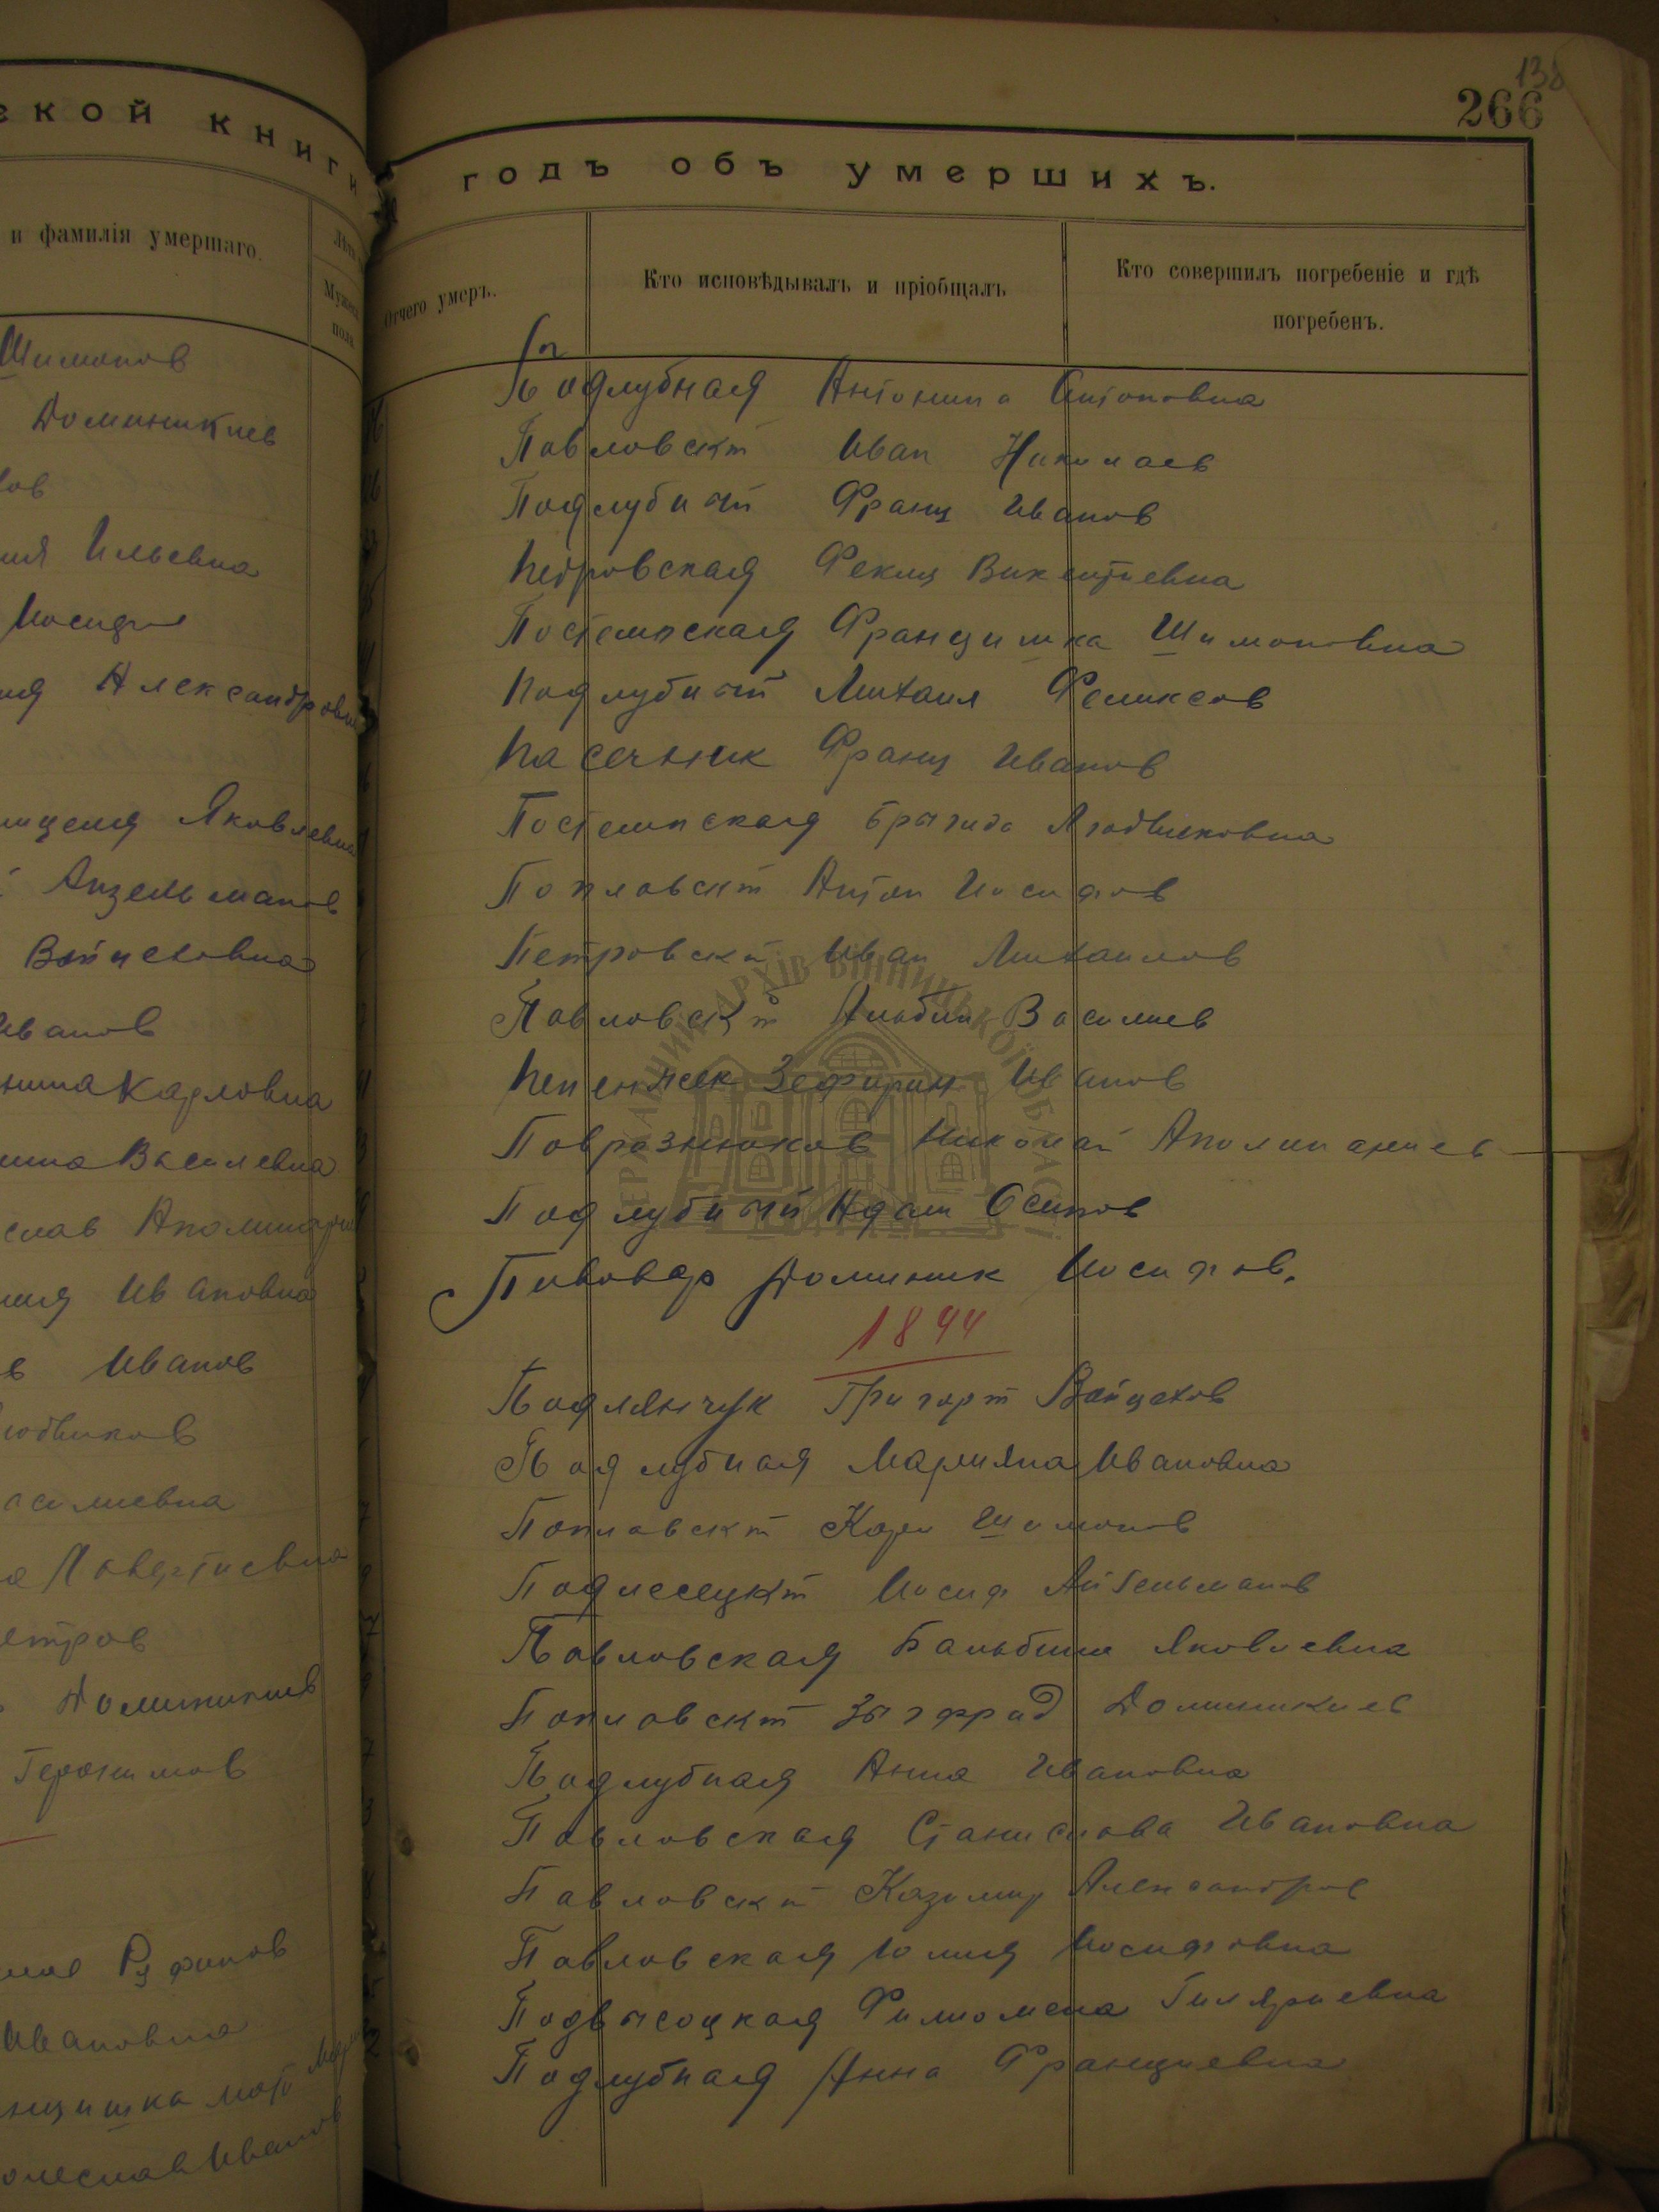 ской книги
и фамилія умершаго.
Лѣта
Мужеск.
пола
Шимонов
Доминикиев
ов
ия Ильевна
Иосиф
ия Александровна
Яковлевна
Анзельманов
Войцеховна
Иванов
Карловна
Василевна
слав Аполинар
ия Ивановна
в Иванов
Людвиков
асилиевна
етров
Доминикиев
Геронимов
Руфинов
Ивановна
нцишка
олеслав Иванов
138
266
годъ объ умершихъ.
Отчего умеръ.
Кто исповѣдывалъ и пріобщалъ
Кто совершилъ погребеніе и гдѣ
погребенъ.
П
Подлубная Антонина Антоновна
Павловскій Иван Николаев
Подлубный Франц Иванов
Петровская Фекла Викентиевна
Постемпская Францишка Шимоновна
Подлубный Михаил Феликсов
Пасечник Франц Иванов
Постемпская Брыгида Людвиковна
Попловскій Антон Иосифов
Петровскій Иван Михаилов
Павловскій Альбин Василиев
Пепенжек Зефирин Иванов
Поврозников Николай Аполинариев
Подлубный Адам Осипов
Пивовар Доминик Иосифов.
1894
Подлянчук Григорій Войцехов
Подлубная Марияна Ивановна
Поплавскій Карл Шимонов
Подлесецкій Иосиф
Павловская Бальбина Яковлевна
Попловскій Зыгфрид Доминикиев
Подлубная Анна Ивановна
Павловская Станислава Ивановна
Павловскій Казимир Александров
Павловская Юлия Иосифовна
Подвысоцкая Филиомена Гиляриевна
Подлубная Анна Францевна
ДЕРЖАВНИЙ АРХІВ ВІННИЦЬКОЇ ОБЛАСТІ